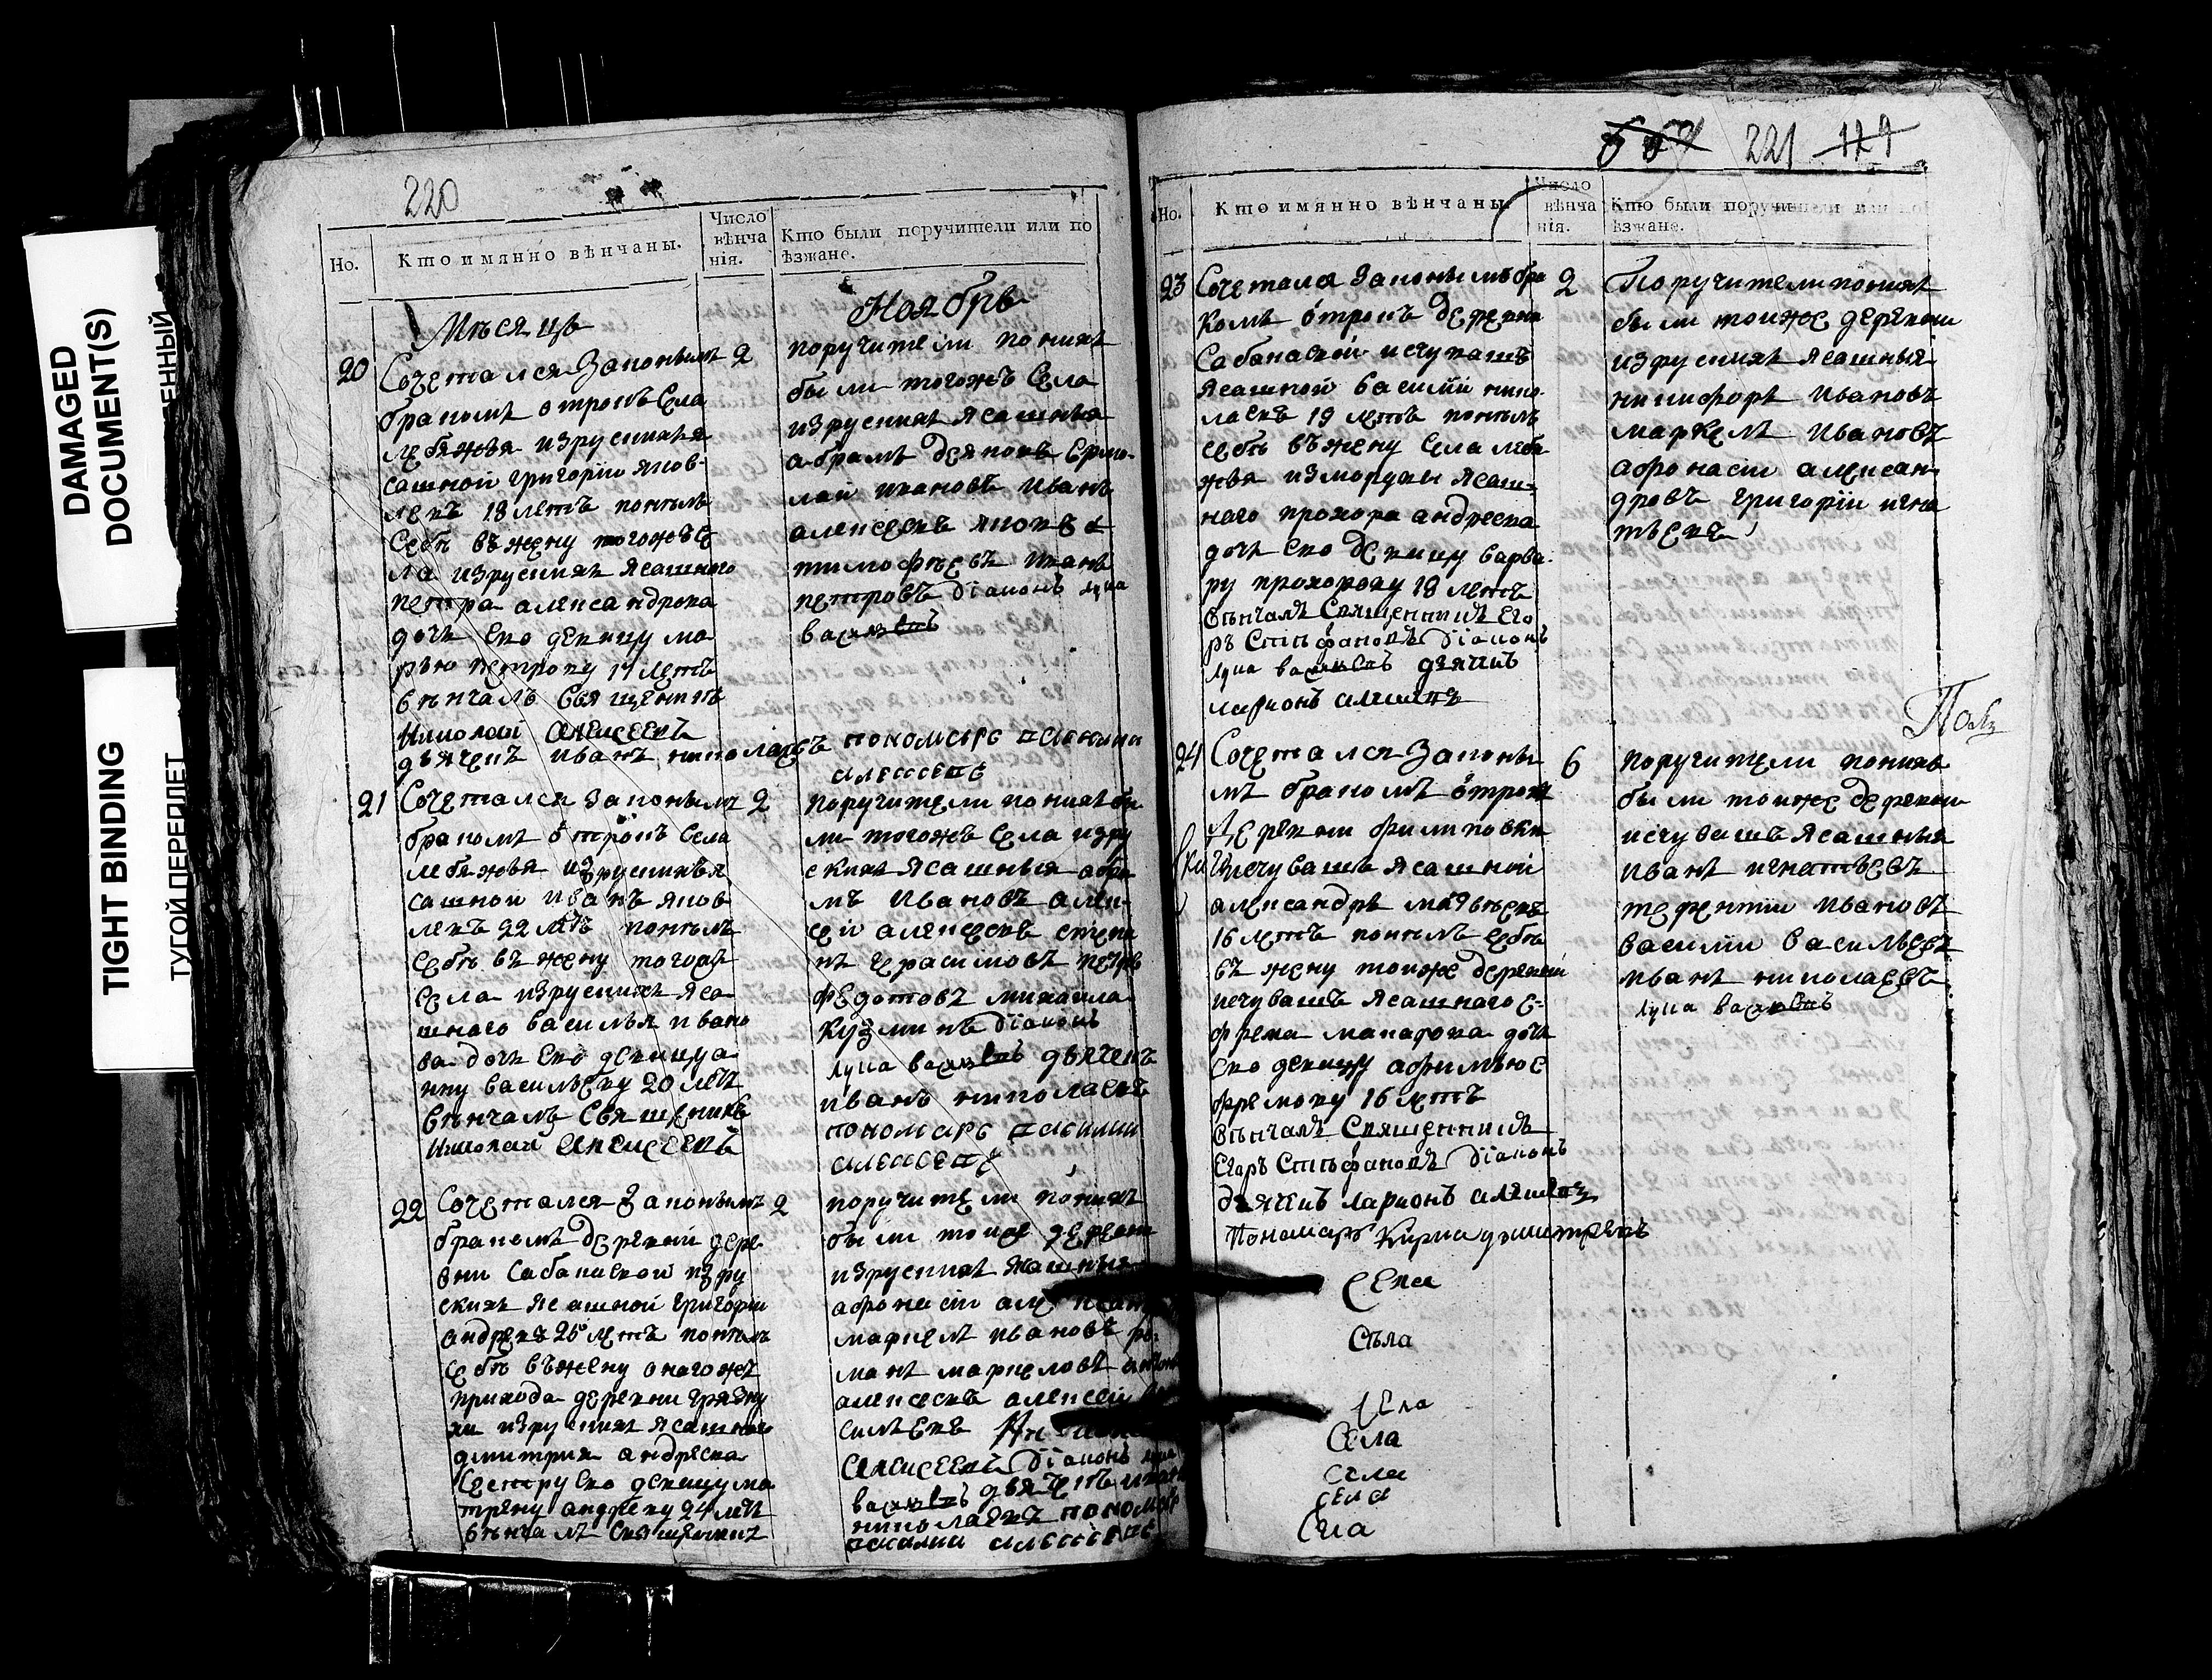 DAMAGED
DOCUMENT(S)
TIGHT BINDING
ТУГОЙ ПЕРЕПЛЕТ
220
Но.
Кто имянно вѣнчаны.
Число
вѣнча
нія.
Кто были поручители или по
ѣзжане.
Мѣсяцъ
Ноябрь
20
Сочетался Законымъ
2
бракомъ отрокъ Села
лебяжья изрускихъ я
сашной григорій яков-
левъ 18 летъ понялъ
Себѣ въ жену тогожъ Се
ла изрускихъ ясашного
петра александрова
дочь Ево девицу ма
рью петрову 17 летъ
вѣнчалъ Священникъ
Николай Алексеевъ
дьячекъ иванъ николаевъ
поручители понихъ
были тогожъ Села
изрускихъ ясашныя
абрамъ Ермо-
лай ивановъ иванъ
алексеевъ яковъ
тимофѣевъ иванъ
петровъ діаконъ лука
пономарь
алексеевъ
21
Сочетался законымъ
2
бракомъ отрокъ Села
лебяжья изрускихъ я
сашной иванъ яков
левъ 22 летъ понялъ
Себѣ въ жену тогожъ
Села изрускихъ яса
шнаго василья ивано
ва дочь Ево девицу а
нну васильеву 20 летъ
вѣнчалъ Священникъ
Николай Алексеевъ
поручители понихъ бы
ли тогожъ Села изру
скихъ ясашныя абра
мъ ивановъ алек-
сей алексеевъ степа
нъ герасимовъ петръ
федотовъ михаила
кузминъ діаконъ
лука дьячекъ
иванъ николаевъ
пономарь
алексеевъ
22
Сочетался Законымъ
2
бракомъ деревни дере
вни Сабанаской изру
скихъ ясашной григорій
андреевъ 25 летъ понялъ
Себѣ въ жену онагожъ
прихода деревни грязну
хи изрускихъ ясашнаго
дмитрия андреева
Сестру Ево девицу ма
трену андрееву 24 летъ
вѣнчалъ Священникъ
поручители понихъ
были тоиже деревни
изрускихъ ясашныя
афонасіи
маркелъ ивановъ ро-
манъ маркеловъ
алексеевъ алексей
сильевъ Николай
Алексеевъ діаконъ лука
дьячекъ иванъ
николаевъ пономарь
алексеевъ
221
Но.
Кто имянно вѣнчаны.
Число
вѣнча
нія.
Кто были поручители или по
ѣзжане.
23
Сочетался Законымъ бра
2
комъ отрокъ деревни
Сабанаской исчувашъ
ясашной василій нико-
лаевъ 19 летъ понялъ
себѣ въ жену Села лебя
жья измордвы ясаш-
наго прохора андреева
дочь ево девицу варва-
ру прохорову 18 летъ
вѣнчалъ Священникъ Его
ръ Стефановъ діаконъ
лука дьячикъ
ларионъ
Поручители понихъ
были тоиже деревни
изрускихъ ясашныя
никифоръ ивановъ
маркелъ ивановъ
афонасіи алексан-
дровъ григоріи игна
тьевъ
24
Сочетался Законы
6
мъ бракомъ отрокъ
деревни филиповки
исчувашъ ясашной
александръ матвѣевъ
16 летъ понялъ себѣ
въ жену тоиже деревни
исчувашъ ясашнаго е-
фрема макарова дочь
ево девицу афимью е
фремову 16 летъ
вѣнчалъ Священникъ
Егоръ Стефановъ діаконъ
дьячикъ ларионъ
Пономарь Кирила дмитреевъ
поручители понихъ
были тоиже деревни
исчувашъ ясашныя
иванъ игнатьевъ
терентіи ивановъ
василіи васильевъ
иванъ николаевъ
лука
Села
Села
Села
Села
Села
Села